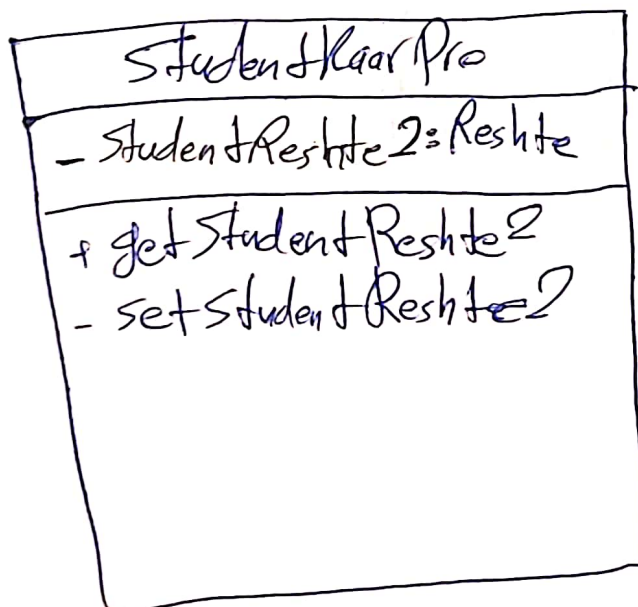 StudentKaarPro
- StudentReshte2:Reshte
+ getStudentReshte2
- setStudentReshte2